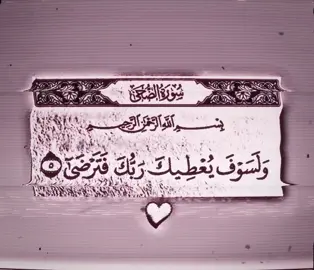 سُورَةُ الضُّحَىٰ
بِسْمِ اللَّهِ الرَّحْمَٰنِ الرَّحِيمِ
وَلَسَوْفَ يُعْطِيكَ رَبُّكَ فَتَرْضَىٰٓ ٥